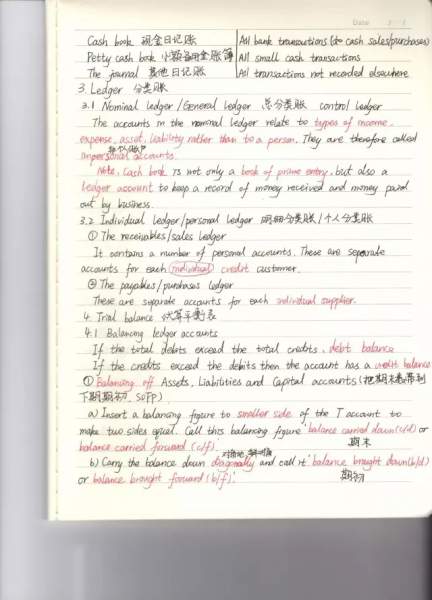 Date
Cash book 现金日记账 All bank transactions (do cash sales/purchases)
Petty cash book 小额备用金账簿 All small cash transactions
The journal 其他日记账 All transactions not recorded elsewhere
3. Ledger 分类账
3.1 Nominal ledger/General ledger 总分类账 control ledger
The accounts in the nominal ledger relate to types of income,
expense, asset, liability rather than to a person. They are therefore called
非个人账户
impersonal accounts.
Note, Cash book is not only a book of prime entry, but also a
ledger account to keep a record of money received and money paid
out by business.
3.2 Individual ledger/personal ledger 明细分类账/个人分类账
① The receivables/sales ledger
It contains a number of personal accounts. These are separate
accounts for each individual credit customer.
② The payables/purchases ledger
These are separate accounts for each individual supplier.
4. Trial balance 试算平衡表
4.1 Balancing ledger accounts
If the total debits exceed the total credits, debit balance
If the credits exceed the debits then the account has a credit balance
① Balancing off Assets, Liabilities and Capital accounts (把期末差带到
下期期初, SOFP)
a) Insert a balancing figure to smaller side of the T account to
make two sides equal. Call this balancing figure 'balance carried down (c/d) or
balance carried forward (c/f).' 期末
b) Carry the balance down diagonally and call it 'balance brought down (b/d)
or balance brought forward (b/f).' 期初